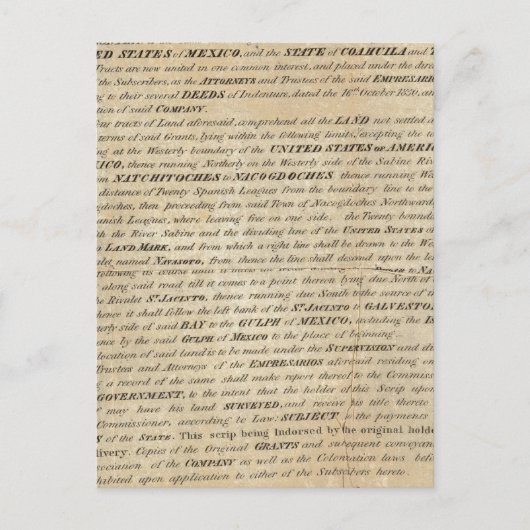 ED STATES of MEXICO, and the STATE of COAHUILA and T
Tracts are now united in one common interest, and placed under the dire
the Subscribers, as the ATTORNEYS and Trustees of the said EMPRESARI
ng to their several DEEDS of Indenture, dated the 16th October 1830, an
tion of said COMPANY.
our tracts of Land aforesaid, comprehend all the LAND not settled a
terms of said Grants, lying within the following limits, excepting the te
ng at the Westerly boundary of the UNITED STATES OF AMERI
ICO, thence running Northerly on the Westerly side of the Sabine Riv
om NATCHITOCHES to NACOGDOCHES, thence running We
distance of Twenty Spanish Leagues from the boundary line to the
gdoches, then preceeding from said Town of Nacogdoches Northward
anish Leagues, where leaving free on one side, the Twenty bounda
th the River Sabine and the dividing line of the UNITED STATES of
to LAND MARK, and from which a right line shall be drawn to the We
ulet named NAVASOTO, from thence the line shall descend upon the le
following its course until it to NA
along said road till it comes to a point thereon lying due North of
he Rivulet St. JACINTO, thence running due South to the source of th
hence it shall follow the left bank of the St. JACINTO to GALVESTON
terly side of said BAY to the GULPH of MEXICO, including the Is
ence by the said GULPH of MEXICO to the place of beginning
location of said land is to be made under the SUPERVISION and di
Trustees and Attorneys of the EMPRESARIOS aforesaid residing on
ng a record of the same shall make report thereof to the Commiss
GOVERNMENT, to the intent that the holder of this Scrip upon
f may have his land SURVEYED, and receive his title thereto
Commissioner, according to Law: SUBJECT to the payments
S of the STATE. This scrip being Indorsed by the original holde
livery. Copies of the Original GRANTS and supequent conveyan
sociation of the COMPANY as well as the Colonization laws befo
hibited upon application to either of the Subscibers hereto.